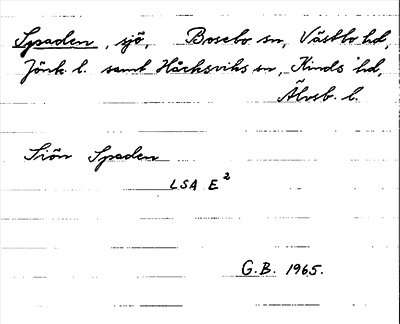 Spaden, sjö, Bosebo sn, Västbo hd,
Jönk. l. samt Håcksviks sn, Kinds hd,
Älvsb. l.
Siön Spaden
LSA E²
G.B. 1965.